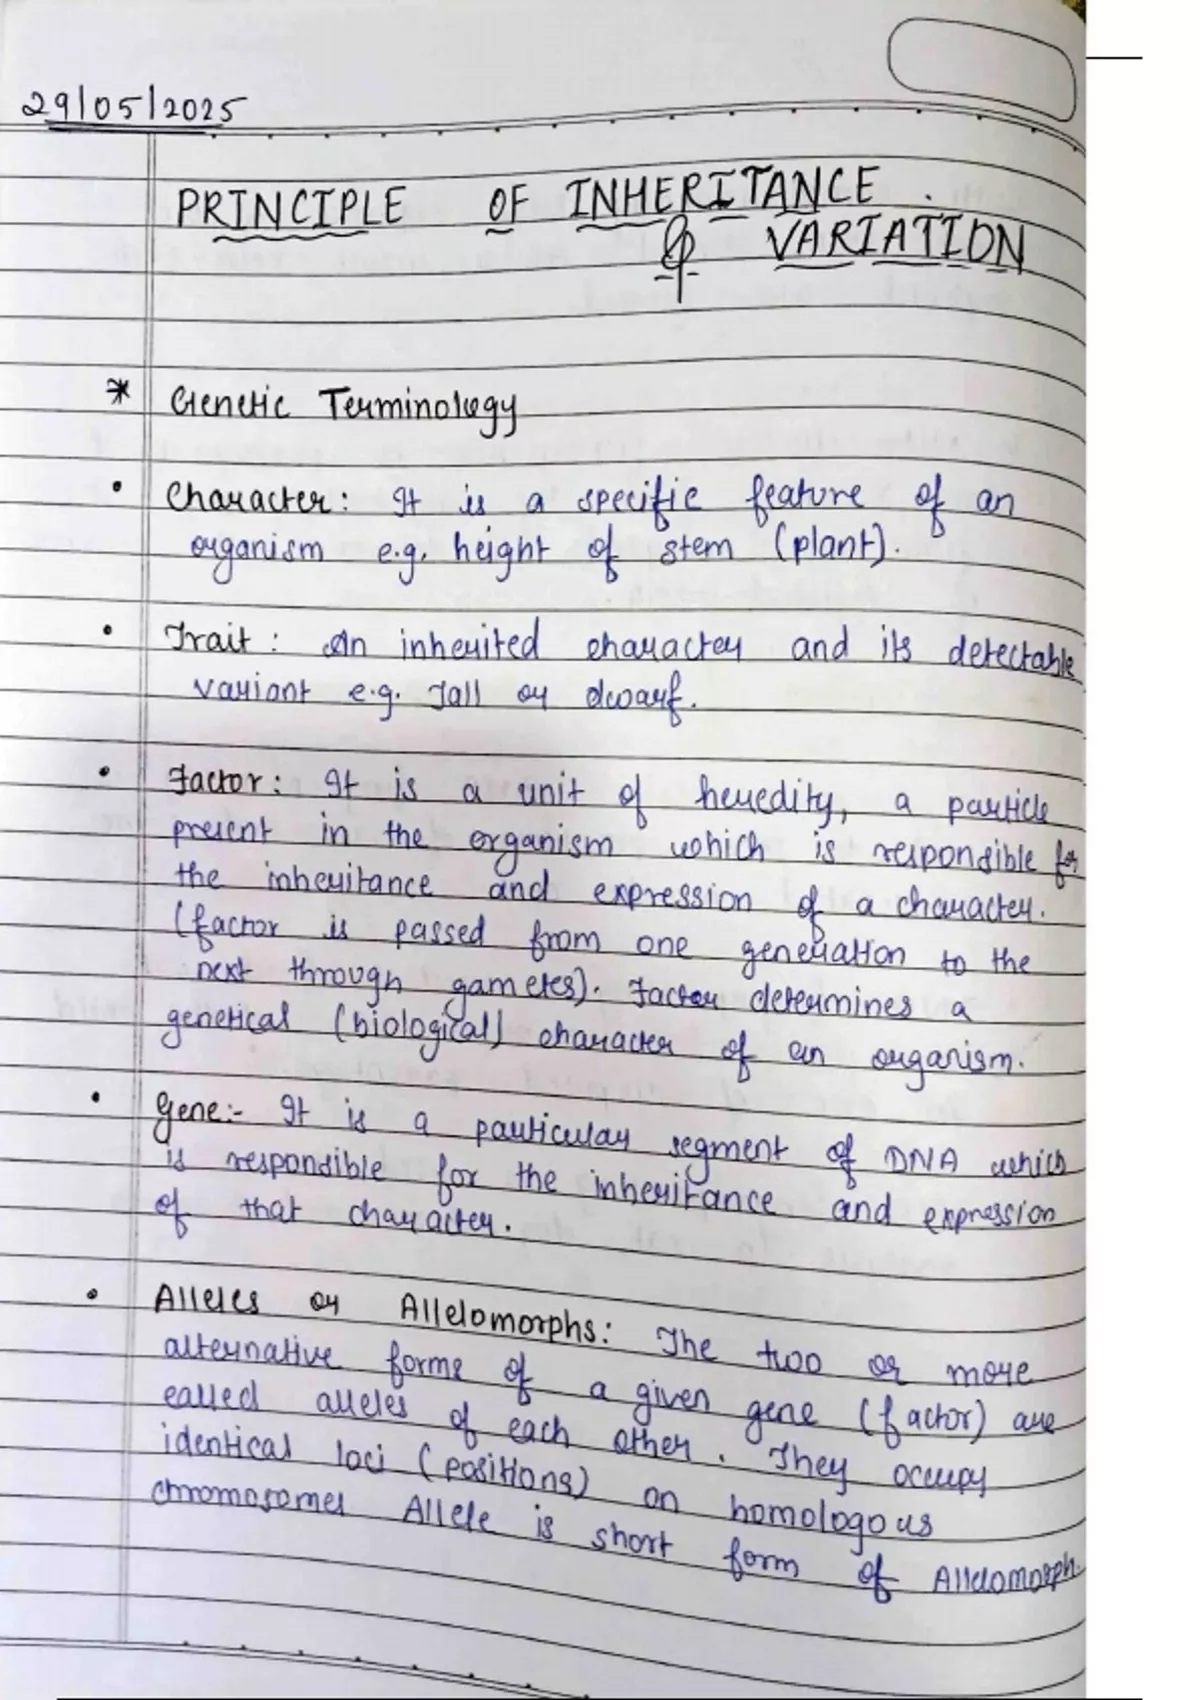 29/05/2025
PRINCIPLE OF INHERITANCE
& VARIATION
* Genetic Terminology
• Character: It is a specific feature of an
organism e.g. height of stem (plant).
• Trait: An inherited character and its detectable
variant e.g. Tall or dwarf.
• Factor: It is a unit of heredity, a particle
present in the organism which is responsible for
the inheritance and expression of a character.
(factor is passed from one generation to the
next through gametes). Factor determines a
genetical (biological) character of an organism.
• Gene:- It is a particular segment of DNA which
is responsible for the inheritance and expression
of that character.
• Alleles or Allelomorphs: The two or more
alternative forms of a given gene (factor) are
called alleles of each other. They occupy
identical loci (positions) on homologous
chromosomes Allele is short form of Allelomorph.